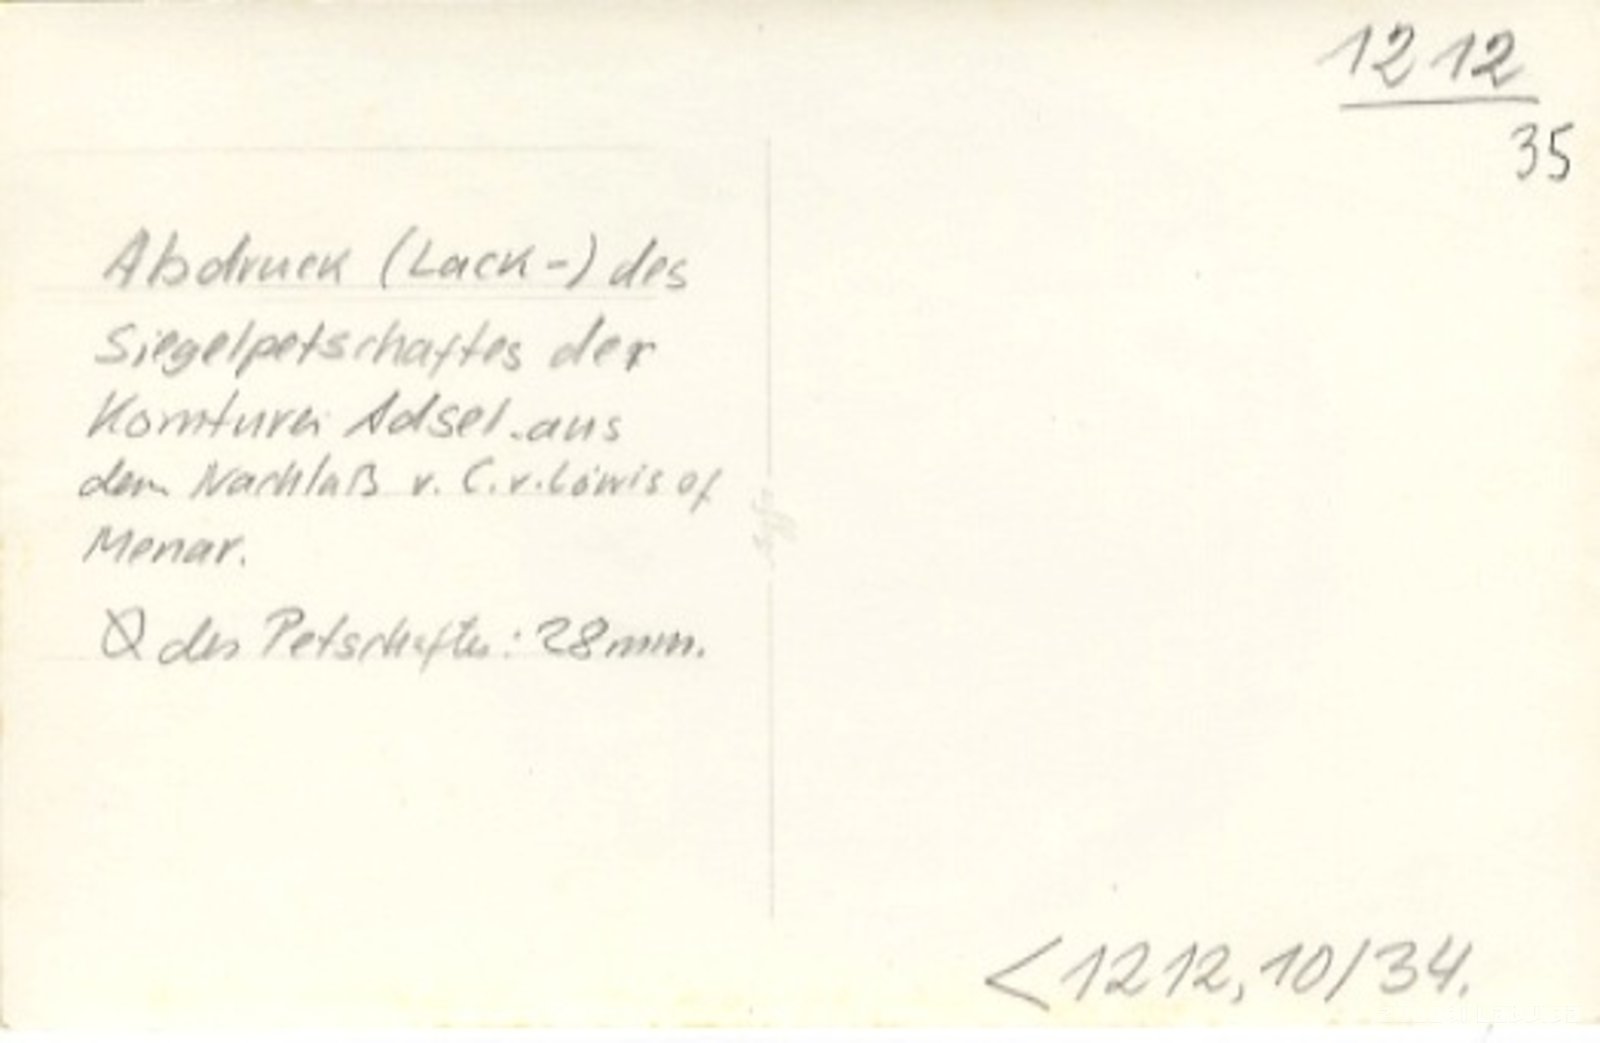 1212
35
Abdruck (Lack-) des
Siegelpetschaftes der
Komturei Adsel. aus
dem Nachlaß v. C. v. Löwis of
Menar.
Ø des Petschaftes: 28mm.
<1212, 10/34.